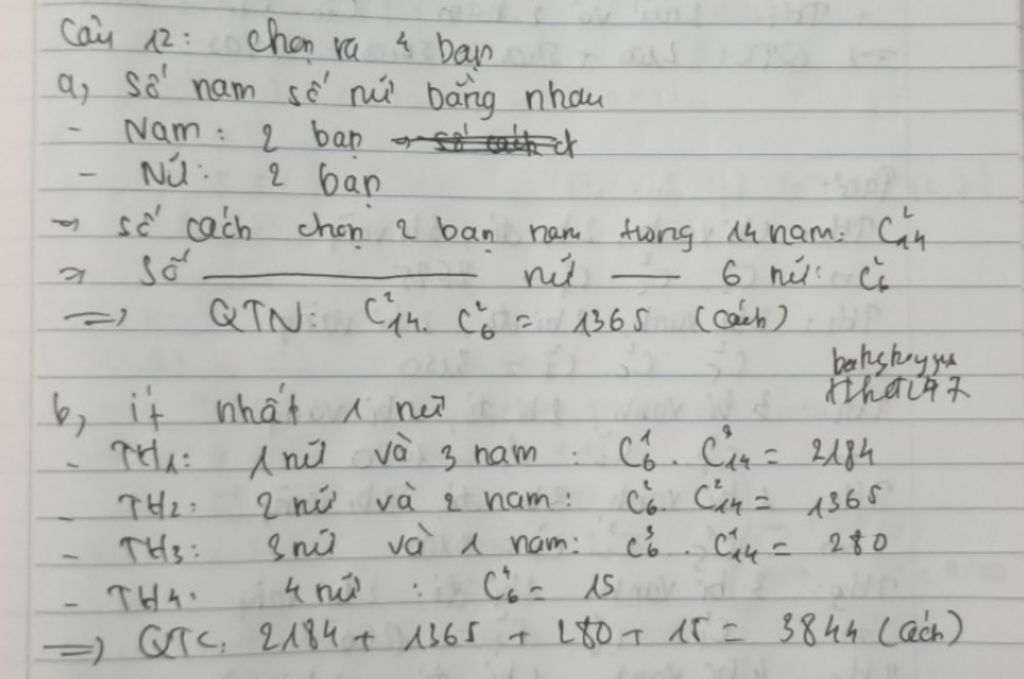 Câu 12: chọn ra 4 bạn
a, số nam số nữ bằng nhau
- Nam: 2 bạn →
- Nữ: 2 bạn
→ số cách chọn 2 bạn nam trong 14 nam: C²₁₄
→ Số ——— nữ —— 6 nữ: C²₆
=> QTN: C²₁₄. C²₆ = 1365 (cách)
b, ít nhất 1 nữ
- TH₁: 1 nữ và 3 nam : C¹₆ . C³₁₄ = 2184
- TH₂: 2 nữ và 2 nam: C²₆. C²₁₄ = 1365
- TH₃: 3 nữ và 1 nam: C³₆ . C¹₁₄ = 280
- TH₄. 4 nữ : C⁴₆ = 15
=> QTC: 2184 + 1365 + 280 + 15 = 3844 (cách)